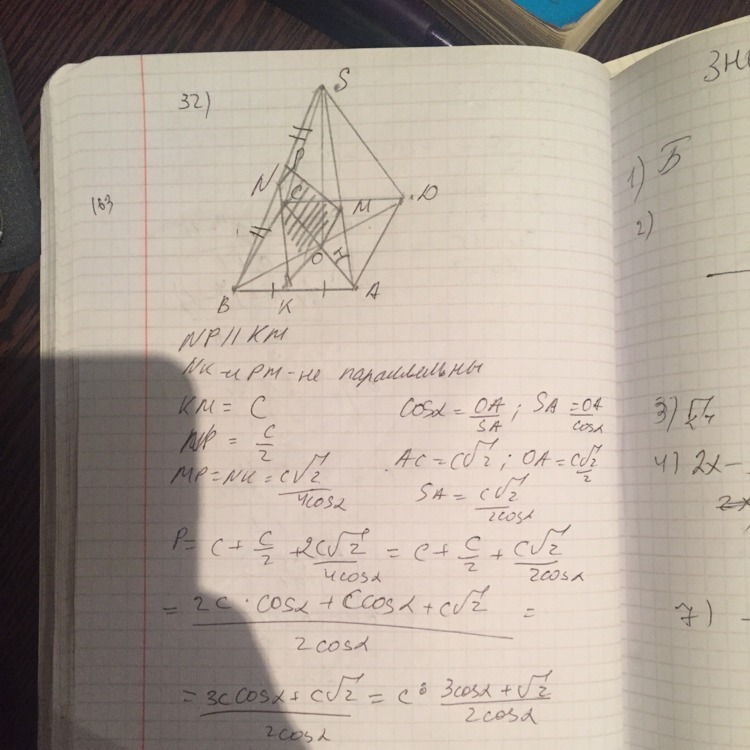 32)
163
S
N
P
C
M
D
O
H
B
K
A
NP // KM
NK и PM - не параллельны
KM = C
NP = C/2
MP = NK = C√2/4cosα
cosα = OA/SA ; SA = OA/cosα
AC = C√2 ; OA = C√2/2
SA = C√2/2cosα
P = C + C/2 + 2C√2/4cosα = C + C/2 + C√2/2cosα
= 2C · cosα + Ccosα + C√2/2cosα =
= 3Ccosα + C√2/2cosα = C · 3cosα + √2/2cosα
1) Б
2)
4) 2x -
7)